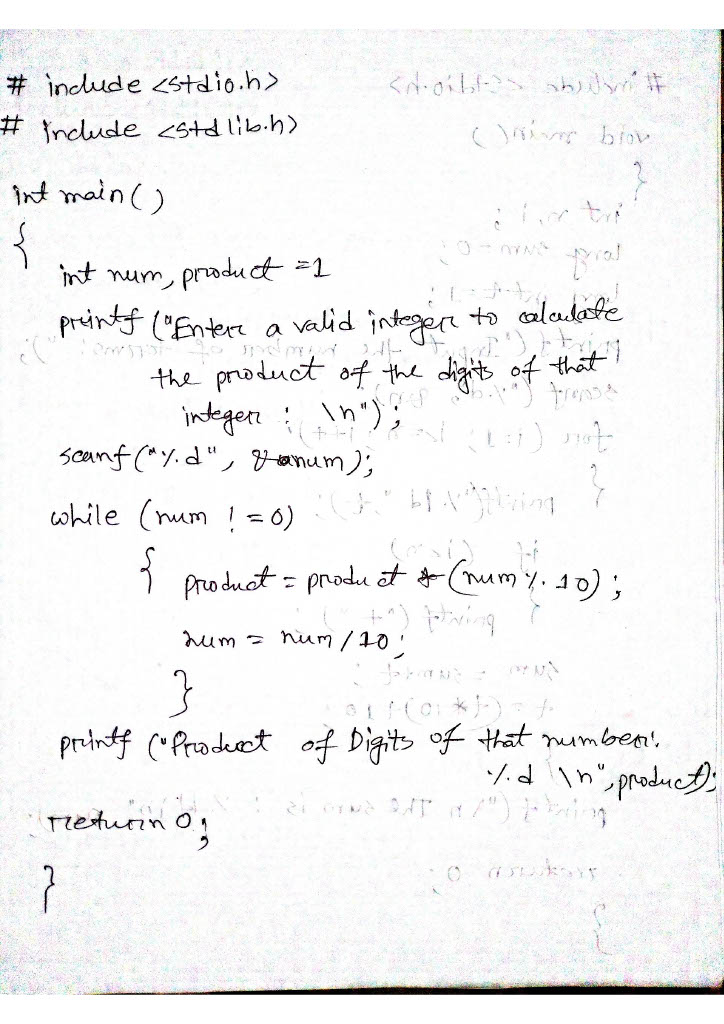 # include <stdio.h>
# include <stdlib.h>
int main()
{
int num, product =1
printf ("Enter a valid integer to calculate
the product of the digits of that
integer : \n");
scanf("%d", &num);
while (num != 0)
{ product = product * (num % 10) ;
num = num / 10;
}
printf ("Product of Digits of that number:
%d \n", product);
return 0;
}